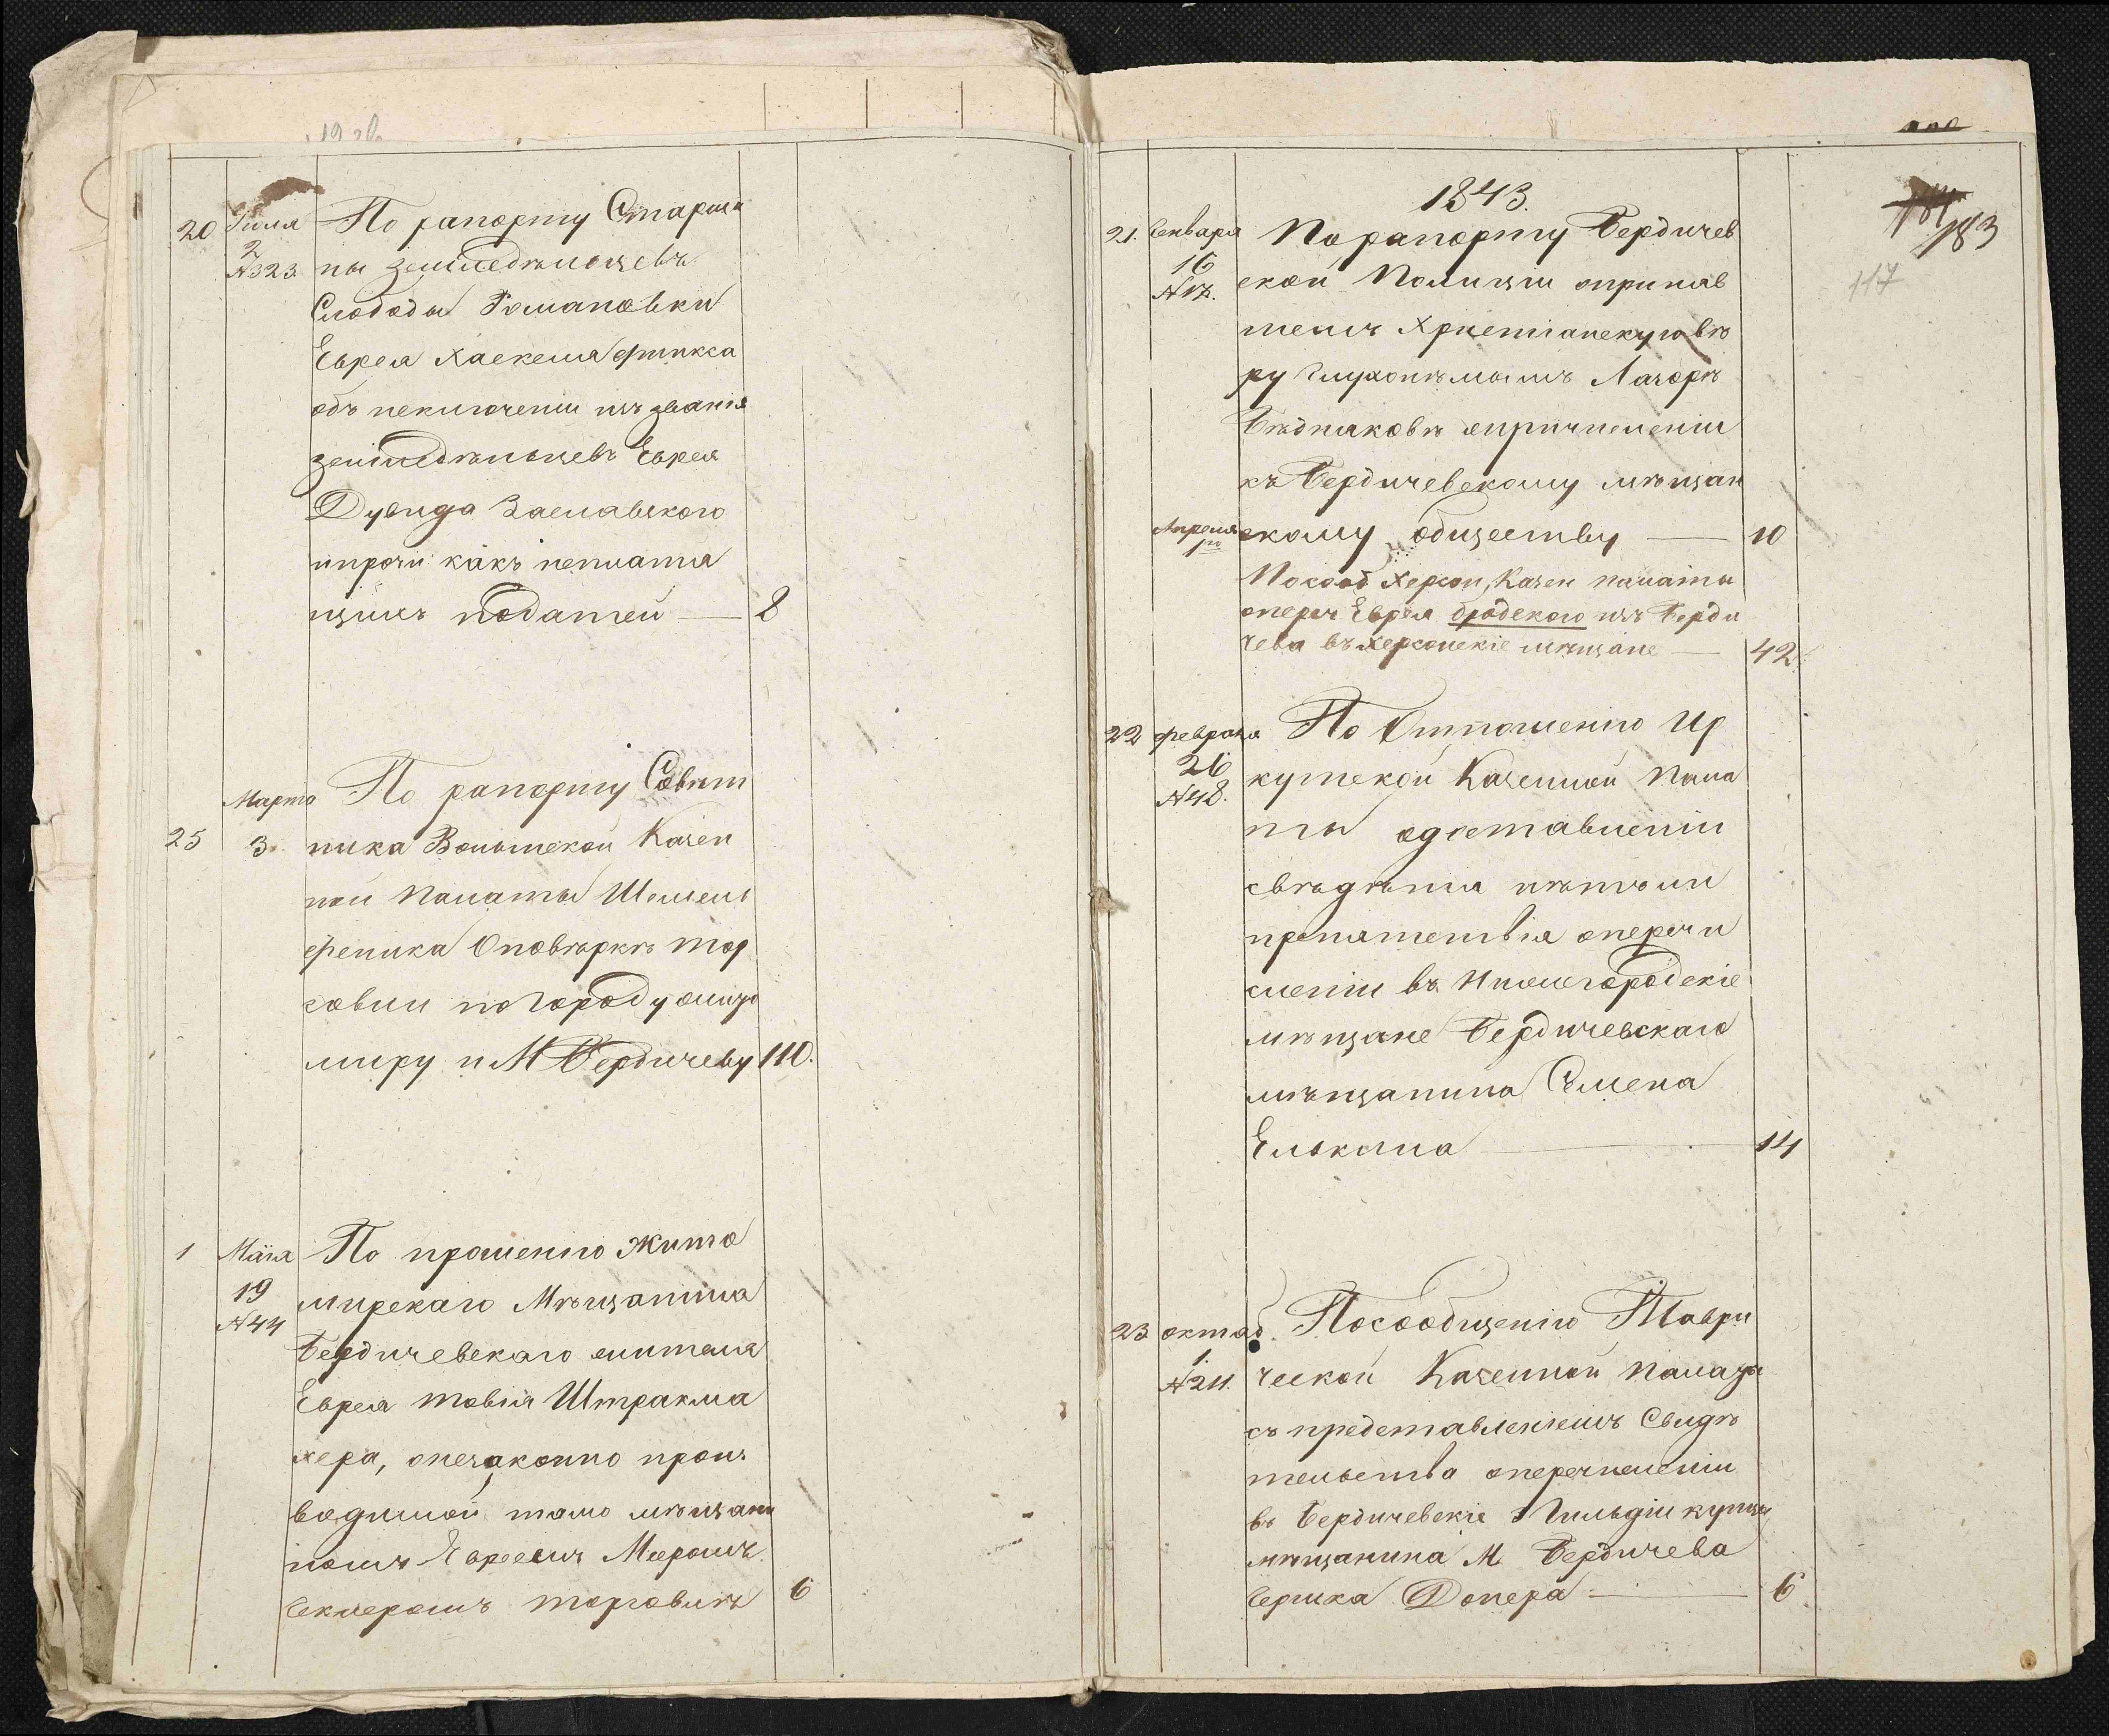 20 Іюля По рапорту Старши
2
№ 323. ны земледѣльцевъ
Слободы Романовки
Еврея Хаскеля Финкса
объ исключеніи изъ званія
земледѣльцевъ Еврея
Дувида Заславскаго
ипрочи какъ неплатя
щихъ податей — 8
Марта По рапорту Совѣт
25 3. ника Волынской Казен
ной Палаты
Оповѣркѣ тор
говли по Городу Жито
миру и М Бердичеву 110.
1 Маія По прошенію Жито
19 мирскаго Мѣщанина
№ 44
Бердичевскаго жителя
Еврея Товія Штракма
хера, онезаконно произ
водимой тамо мѣщани
номъ Евреемъ Меромъ
торговлѣ 6
1843.
183
117
21. Генваря По рапорту Бердичев
16 ской Полиціи оприняв
шемъ Христіанскую вѣ
ру Глухонѣмымъ Лазорѣ
Бѣдняковѣ опричисленіи
къ Бердичевскому мѣщан
Апреля скому обществу — 10
Посооб Херсон, Казен палаты
опереч Еврея Бродского изъ Берди
чева въ херсонскіе мѣщане — 42
22 февраля По Отношенію Ир
26 кутской Казенной Пала
№ 48.
ты одоставленіи
свѣдѣнія нѣтъ ли
препятствія оперечи
сленіи въ Нижегородскіе
мѣщане Бердичевскаго
мѣщанина Семена
Елькина — 14
23 октяб. Посообщенію Таври
1.
№ 211. ческой Казенной Палаты
съ представленіемъ Свидѣ
тельства оперечисленіи
въ Бердичевскіе Гильдіи купцы
мѣщанина М. Бердичева
Берика Донера — 6